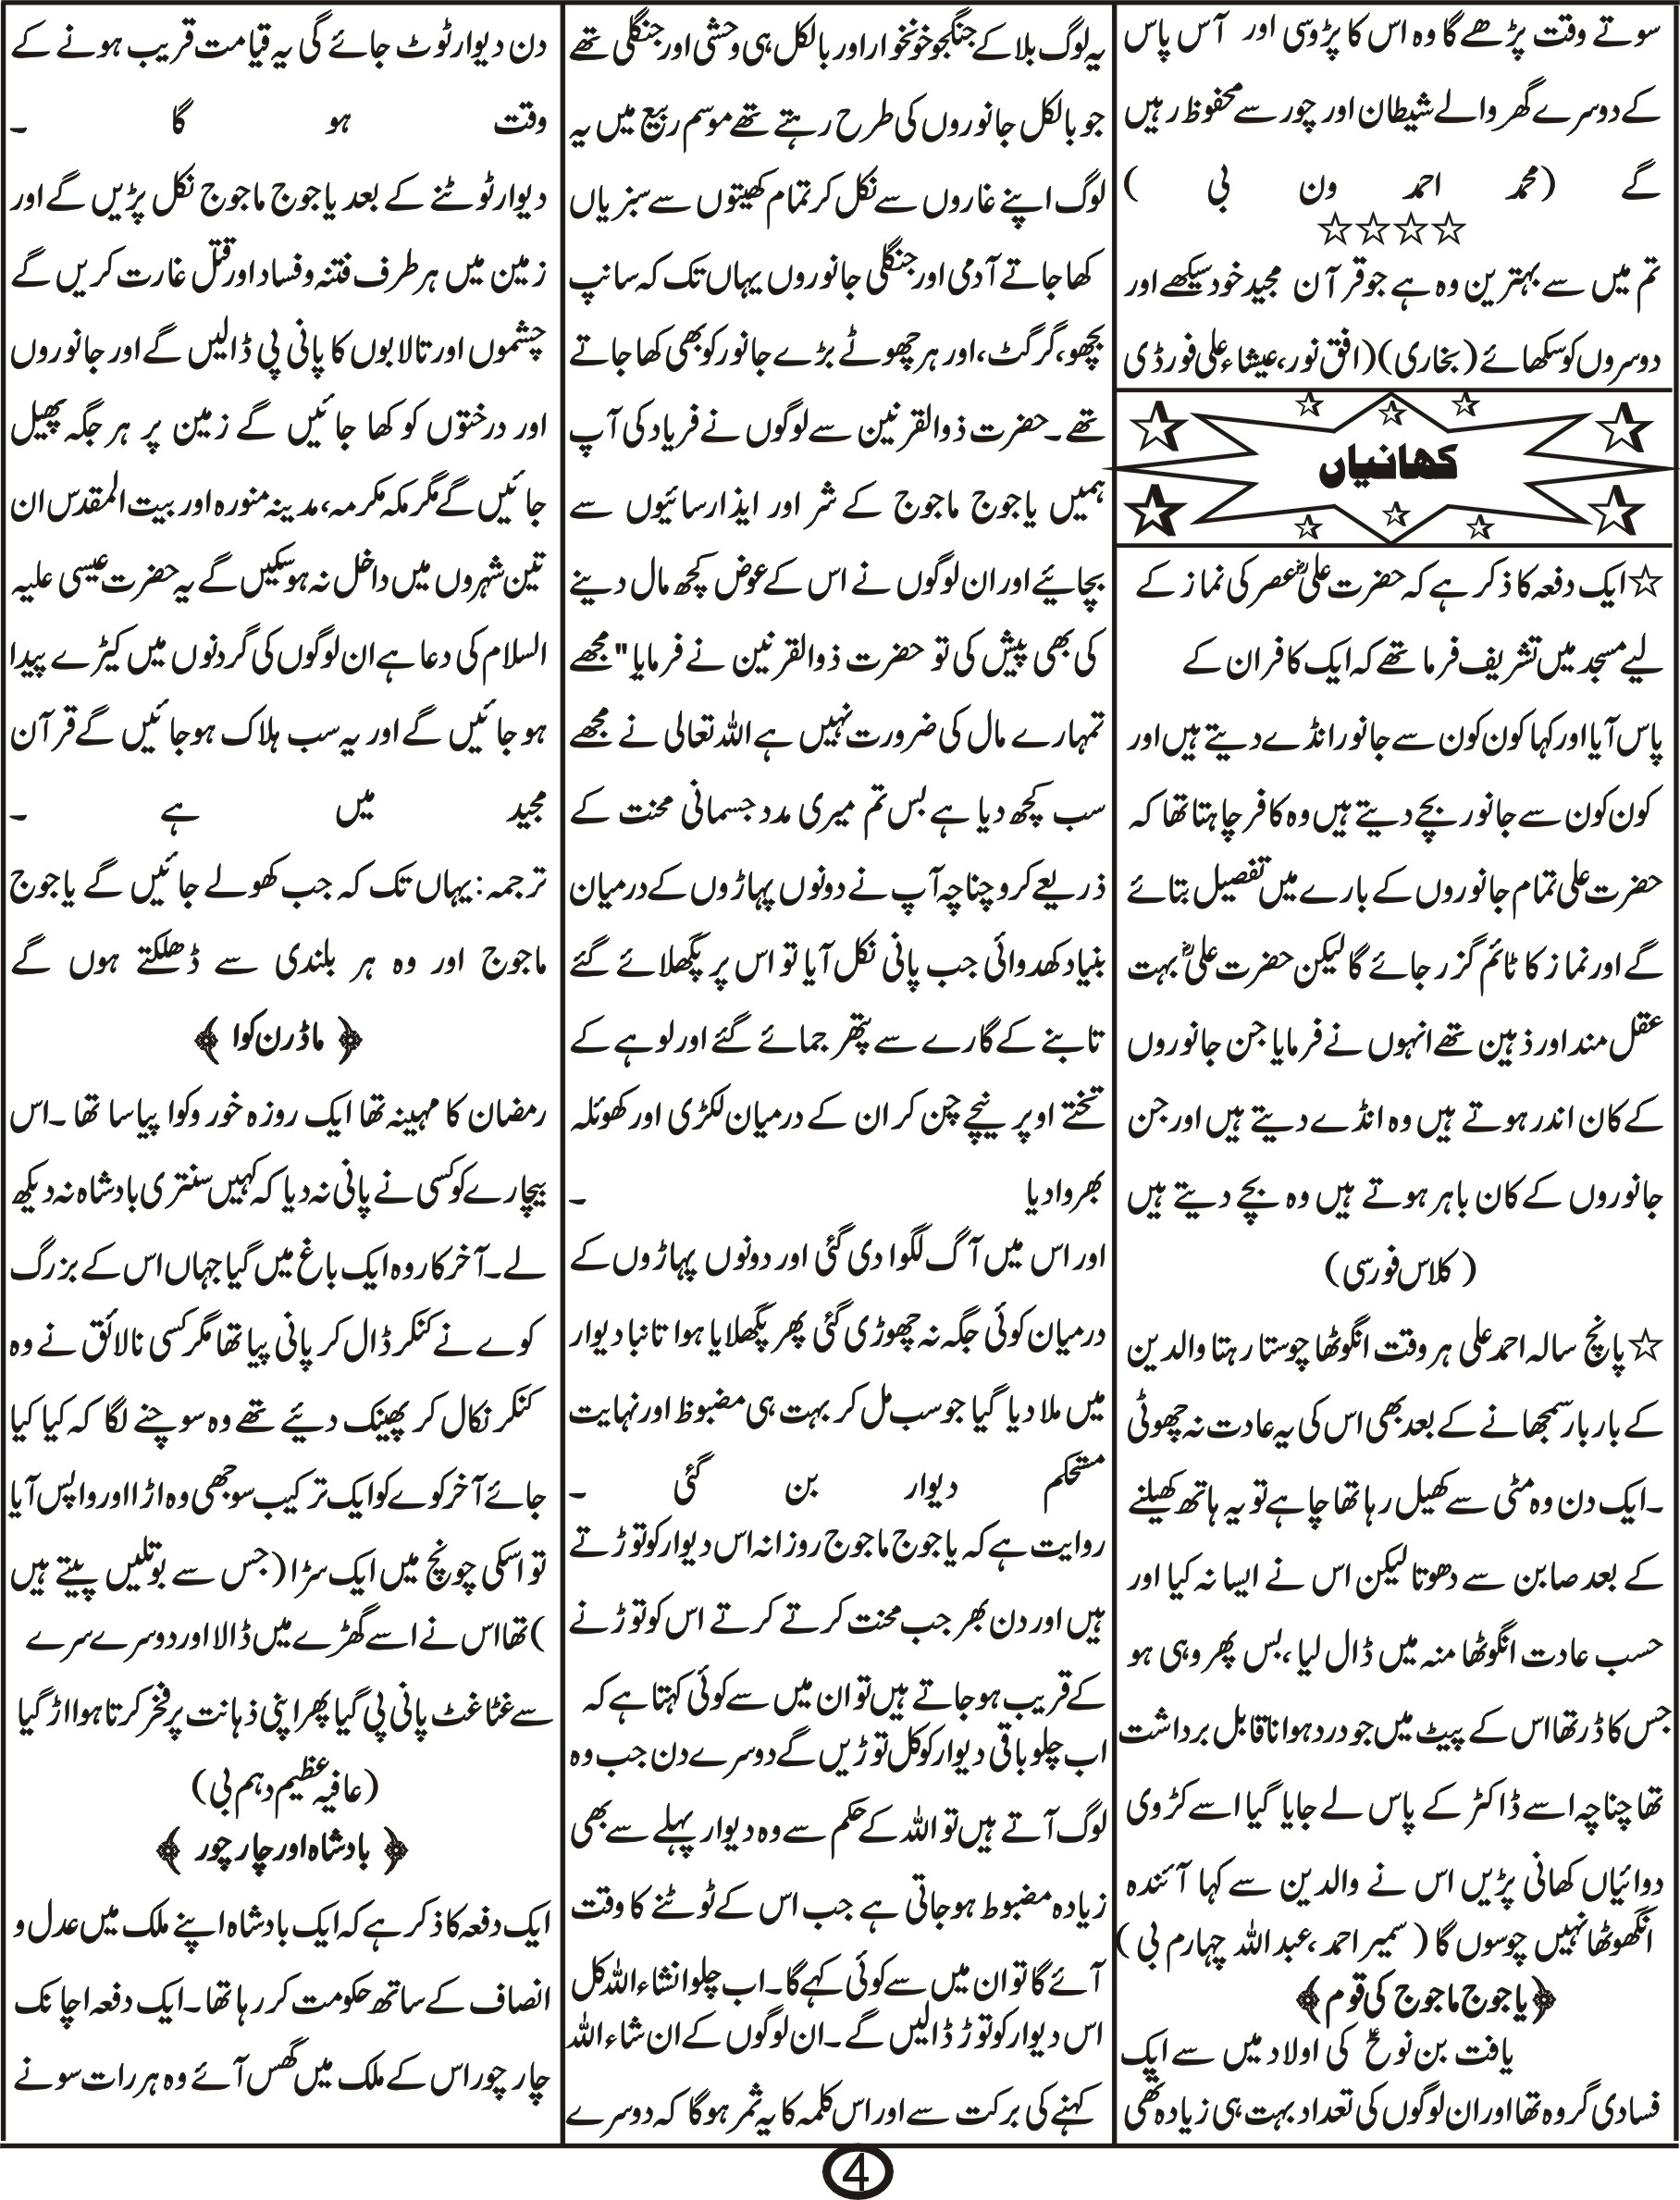 سوتے وقت پڑھے گا وہ اس کا پڑوسی اور آس پاس
کے دوسرے گھر والے شیطان اور چور سے محفوظ رہیں
گے (محمد احمد ون بی )
☆☆☆☆
تم میں سے بہترین وہ ہے جو قرآن مجید خود سیکھے اور
دوسروں کو سکھائے (بخاری)(افق نور، عیشاء علی فور ڈی
کہانیاں
☆ایک دفعہ کا ذکر ہے کہ حضرت علیؓ عصر کی نماز کے
لیے مسجد میں تشریف فرما تھے کہ ایک کافر ان کے
پاس آیا اور کہا کون کون سے جانور انڈے دیتے ہیں اور
کون کون سے جانور بچے دیتے ہیں وہ کافر چاہتا تھا کہ
حضرت علی تمام جانوروں کے بارے میں تفصیل بتائے
گے اور نماز کا ٹائم گزر جائے گا لیکن حضرت علیؓ بہت
عقل مند اور ذہین تھے انہوں نے فرمایا جن جانوروں
کے کان اندر ہوتے ہیں وہ انڈے دیتے ہیں اور جن
جانوروں کے کان باہر ہوتے ہیں وہ بچے دیتے ہیں
( کلاس فور سی)
☆پانچ سالہ احمد علی ہر وقت انگوٹھا چوستا رہتا والدین
کے بار بار سمجھانے کے بعد بھی اس کی یہ عادت نہ چھوٹی
۔ایک دن وہ مٹی سے کھیل رہا تھا چاہے تو یہ ہاتھ کھیلنے
کے بعد صابن سے دھوتا لیکن اس نے ایسا نہ کیا اور
حسب عادت انگوٹھا منہ میں ڈال لیا ،بس پھر وہی ہو
جس کا ڈر تھا اس کے پیٹ میں جو درد ہوا ناقابل برداشت
تھا چناچہ اسے ڈاکٹر کے پاس لے جایا گیا اسے کڑوی
دوائیاں کھانی پڑیں اس نے والدین سے کہا آئندہ
انگھوٹھا نہیں چوسوں گا ( سمیر احمد ،عبداللہ چہارم بی )
﴿یاجوج ماجوج کی قوم ﴾
یافت بن نوحؑ کی اولاد میں سے ایک
فسادی گروہ تھا اور ان لوگوں کی تعداد بہت ہی زیادہ تھی
یہ لوگ بلا کے جنگجو خونخوار اور بالکل ہی وحشی اور جنگلی تھے
جو بالکل جانوروں کی طرح رہتے تھے موسم ربیع میں یہ
لوگ اپنے غاروں سے نکل کر تمام کھیتوں سے سبزیاں
کھا جاتے آدمی اور جنگلی جانوروں یہاں تک کہ سانپ
بچھو، گرگٹ، اور ہر چھوٹے بڑے جانور کو بھی کھا جاتے
تھے ۔حضرت ذوالقرنین سے لوگوں نے فریاد کی آپ
ہمیں یاجوج ماجوج کے شر اور ایذارسائیوں سے
بچائیے اور ان لوگوں نے اس کے عوض کچھ مال دینے
کی بھی پیش کی تو حضرت ذوالقرنین نے فرمایا" مجھے
تمہارے مال کی ضرورت نہیں ہے اللہ تعالی نے مجھے
سب کچھ دیا ہے بس تم میری مدد جسمانی محنت کے
ذریعے کرو چناچہ آپ نے دونوں پہاڑوں کے درمیان
بنیاد کھدوائی جب پانی نکل آیا تو اس پر پگھلائے گئے
تابنے کے گارے سے پتھر جمائے گئے اور لوہے کے
تختے اوپر نیچے چن کر ان کے درمیان لکڑی اور کھوئلہ
بھروادیا ۔
اور اس میں آگ لگوا دی گئی اور دونوں پہاڑوں کے
درمیان کوئی جگہ نہ چھوڑی گئی پھر پگھلایا ہوا تانبا دیوار
میں ملا دیا گیا جو سب مل کر بہت ہی مضبوظ اور نہایت
مستحکم دیوار بن گئی ۔
روایت ہے کہ یاجوج ماجوج روزانہ اس دیوار کو توڑتے
ہیں اور دن بھر جب محنت کرتے کرتے اس کو توڑنے
کے قریب ہو جاتے ہیں تو ان میں سے کوئی کہتا ہے کہ
اب چلو باقی دیوار کو کل توڑیں گے دوسرے دن جب وہ
لوگ آتے ہیں تو اللہ کے حکم سے وہ دیوار پہلے سے بھی
زیادہ مضبوط ہو جاتی ہے جب اس کے ٹوٹنے کا وقت
آئے گا تو ان میں سے کوئی کہے گا ۔اب چلو انشاء اللہ کل
اس دیوار کو توڑ ڈالیں گے ۔ان لوگوں کے ان شاء اللہ
کہنے کی برکت سے اور اس کلمہ کا یہ ثمر ہوگا کہ دوسرے
دن دیوار ٹوٹ جائے گی یہ قیامت قریب ہونے کے
وقت ہو گا ۔
دیوار ٹوٹنے کے بعد یاجوج ماجوج نکل پڑیں گے اور
زمین میں ہر طرف فتنہ و فساد اور قتل غارت کریں گے
چشموں اور تالابوں کا پانی پی ڈالیں گے اور جانوروں
اور درختوں کو کھا جائیں گے زمین پر ہر جگہ پھیل
جائیں گے مگر مکہ مکرمہ، مدینہ منورہ اور بیت المقدس ان
تین شہروں میں داخل نہ ہو سکیں گے یہ حضرت عیسی علیہ
السلام کی دعا ہے ان لوگوں کی گردنوں میں کیڑے پیدا
ہو جائیں گے اور یہ سب ہلاک ہو جائیں گے قرآن
مجید میں ہے ۔
ترجمہ: یہاں تک کہ جب کھولے جائیں گے یاجوج
ماجوج اور وہ ہر بلندی سے ڈھلکتے ہوں گے
﴿ ماڈرن کوا ﴾
رمضان کا مہینہ تھا ایک روزہ خور و کوا پیاسا تھا ۔اس
بیچارے کو کسی نے پانی نہ دیا کہ کہیں سنتری بادشاہ نہ دیکھ
لے ۔آخر کار وہ ایک باغ میں گیا جہاں اس کے بزرگ
کوے نے کنکر ڈال کر پانی پیا تھا مگر کسی نالائق نے وہ
کنکر نکال کر پھینک دئیے تھے وہ سوچنے لگا کہ کیا کیا
جائے آخر کوے کو ایک ترکیب سوجھی وہ اڑا اور واپس آیا
تو اسکی چونچ میں ایک سڑا (جس سے بوتلیں پیتے ہیں
)تھا اس نے اسے گھڑے میں ڈالا اور دوسرے سرے
سے غٹا غٹ پانی پی گیا پھر اپنی ذہانت پر فخر کرتا ہوا اڑ گیا
(عافیہ عظیم دہم بی)
﴿ بادشاہ اور چار چور ﴾
ایک دفعہ کا ذکر ہے کہ ایک بادشاہ اپنے ملک میں عدل و
انصاف کے ساتھ حکومت کر رہا تھا ۔ایک دفعہ اچانک
چار چور اس کے ملک میں گھس آئے وہ ہر رات سونے
4